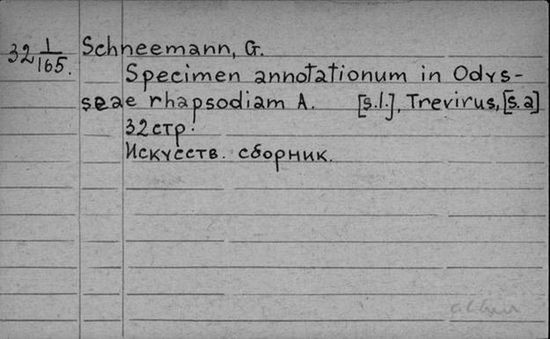 32 1/165. Schneemann, G.
Specimen annotationum in Odys-
seae rhapsodiam A. [s.l.], Trevirus, [s.a]
32 стр.
Искусств. сборник.